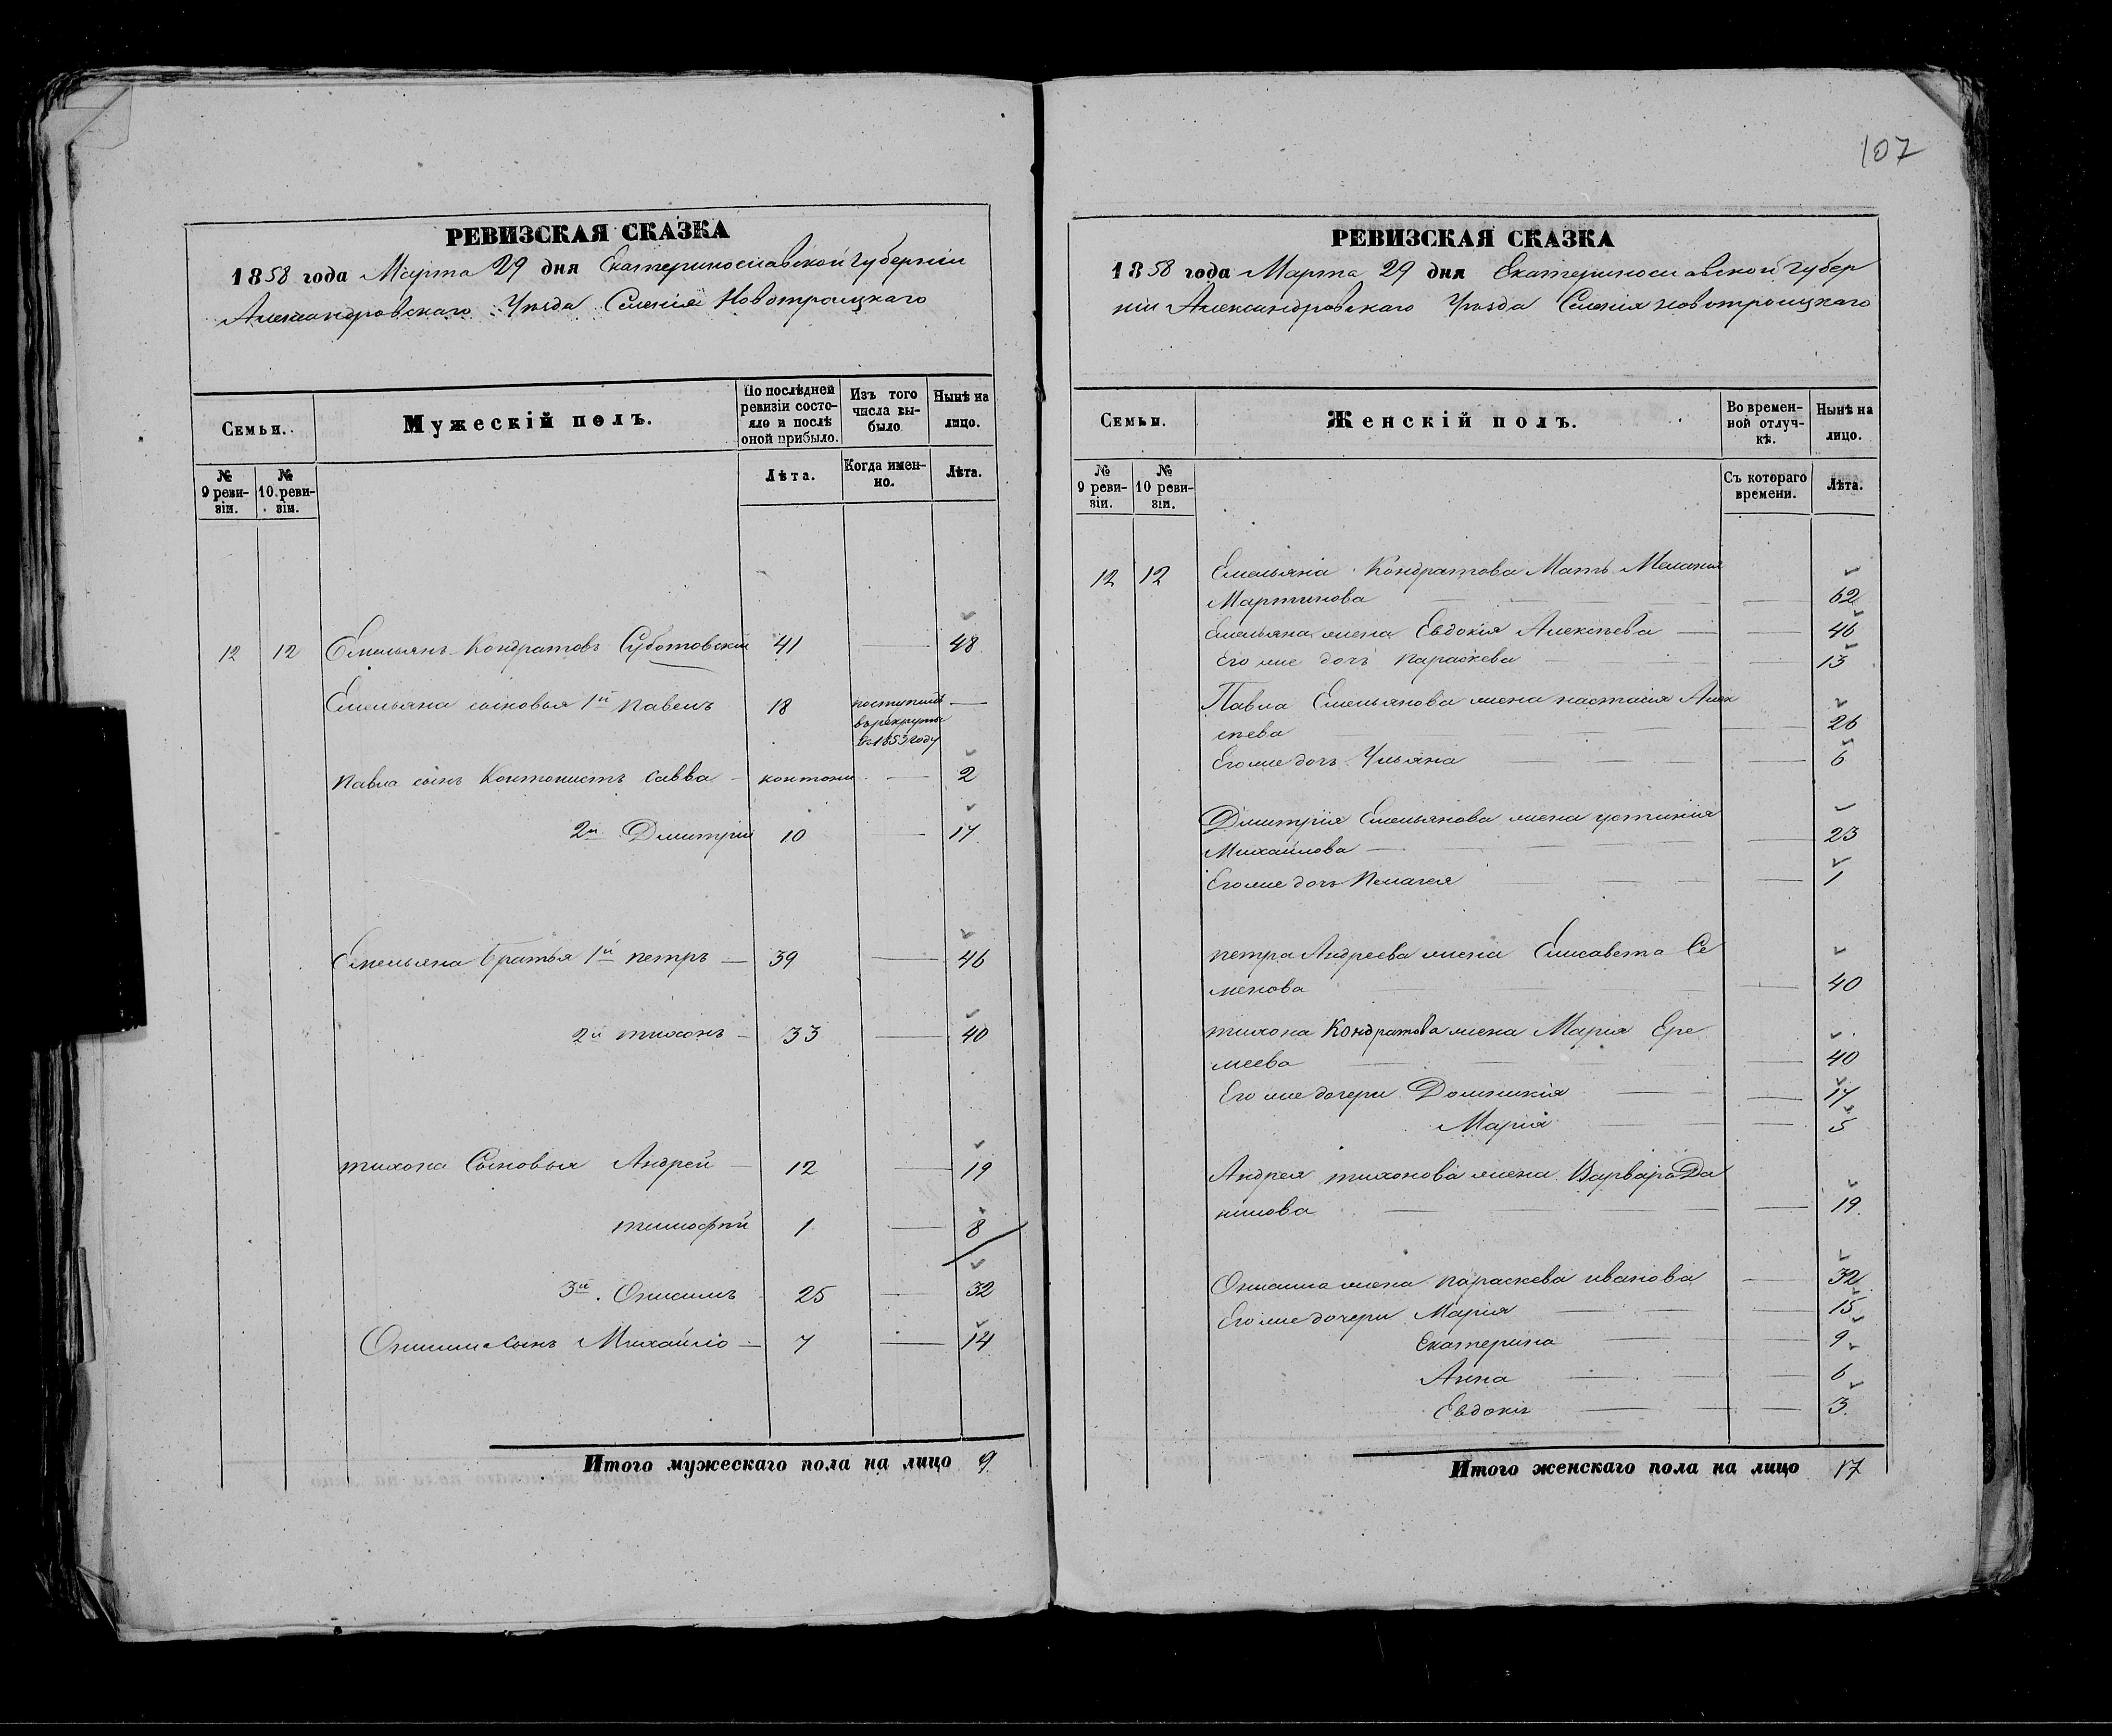 107
РЕВИЗСКАЯ СКАЗКА
1858 года Марта 29 дня Екатеринославской губерніи
Александровскаго Уѣзда Селенія Новотроицкаго
Семьи.
Мужескій полъ.
По послѣдней ревизіи состояло и послѣ оной прибыло.
Изъ того числа выбыло
Нынѣ на лицо.
№ 9 ревизіи.
№ 10 ревизіи.
Лѣта.
Когда именно.
Лѣта.
12 12 Емельянъ Кондратовъ Суботовскій 41 — 48
Емельяна сыновья 1й павелъ 18 поступилъ в рекруты в 1853 году —
Павла сынъ Контонистъ савва — контони — 2
2й Дмитрій 10 — 17
Емельяна братья 1й петръ — 39 — 46
2й тихонъ — 33 — 40
тихона Сыновья Андрей — 12 — 19
тимофѣй 1 — 8
3й Онисимъ 25 — 32
Онисима сынъ Михайло — 7 — 14
Итого мужескаго пола на лицо 9
РЕВИЗСКАЯ СКАЗКА
1858 года Марта 29 дня Екатеринославской губер
ніи Александровскаго Уѣзда Селенія новотроицкаго
Семьи.
Женскій полъ.
Во временной отлучкѣ.
Нынѣ на лицо.
№ 9 ревизіи.
№ 10 ревизіи.
Съ котораго времени.
Лѣта.
12 12 Емельяна Кондратова Мать Меланья
Мартинова — 62
Емельяна жена Евдокія Алексѣева — 46
Его же дочь параскева — 13
Павла Емельянова жена настасія Алек
сѣева — 26
Его же дочь Ульяна — 6
Дмитрія Емельянова жена устинія
Михайлова — 23
Его же дочь Пелагея — 1
петра Андреева жена Елисавета Се
менова — 40
тихона Кондратова жена Марія Ере
меева — 40
Его же дочери Домникія — 17
Марія — 5
Андрея тихонова жена Варвара Да
нилова — 19
Онисима жена параскева иванова — 32
Его же дочери Марія — 15
Екатерина — 9
Анна — 6
Евдокія — 3
Итого женскаго пола на лицо 17